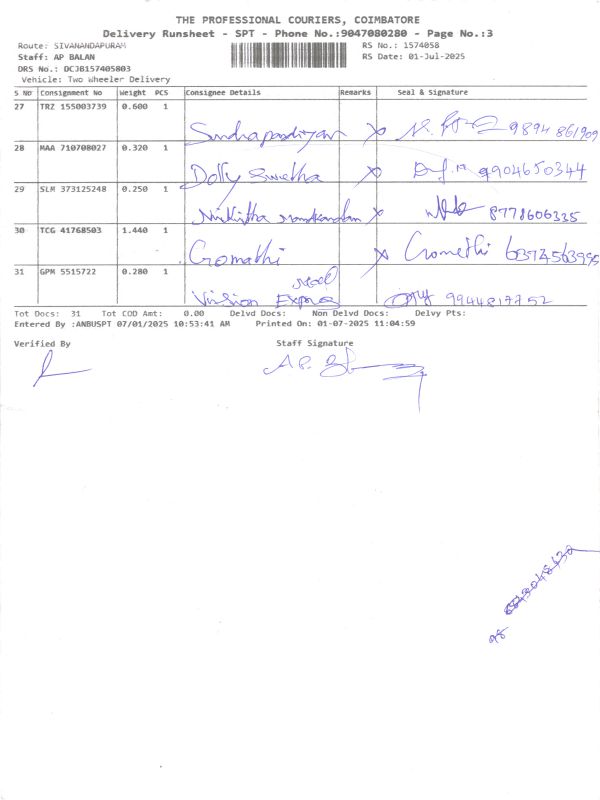 THE PROFESSIONAL COURIERS, COIMBATORE
Delivery Runsheet - SPT - Phone No.:9047080280 - Page No.:3
Route: SIVANANDAPURAM
RS No.: 1574058
Staff: AP BALAN
RS Date: 01-Jul-2025
DRS No.: DCJB157405803
Vehicle: Two Wheeler Delivery
S No Consignment No Weight PCS Consignee Details Remarks Seal & Signature
27 TRZ 155003739 0.600 1
9894861909
28 MAA 710708027 0.320 1
Dolly Swetha 9904650344
29 SLM 373125248 0.250 1
8778606335
30 TCG 41768503 1.440 1
Gomathi x Gomethi 6374563995
31 GPM 5515722 0.280 1
Vision Express 9944817752
Tot Docs: 31 Tot COD Amt: 0.00 Delvd Docs: Non Delvd Docs: Delvy Pts:
Entered By :ANBUSPT 07/01/2025 10:53:41 AM Printed On: 01-07-2025 11:04:59
Verified By Staff Signature